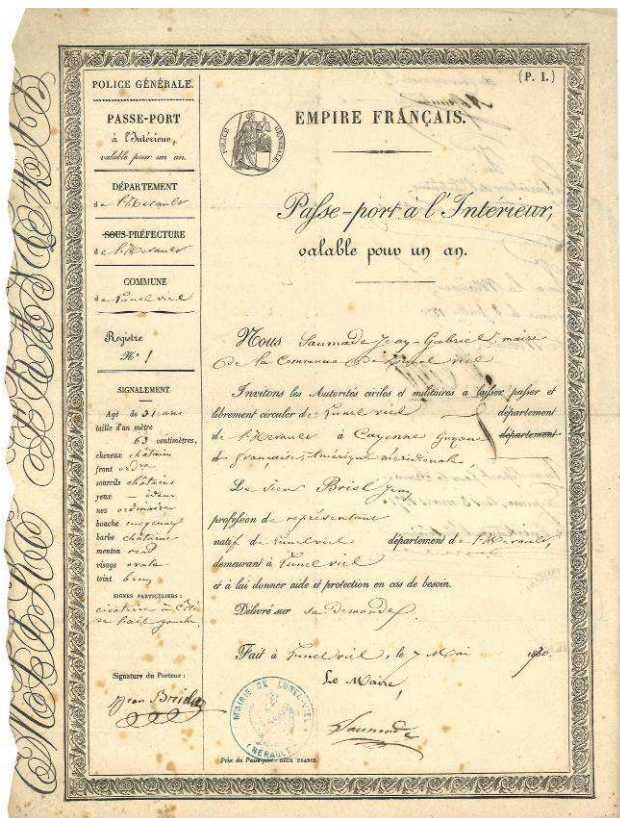 (P. I.)
POLICE GÉNÉRALE.
PASSE-PORT
à l'Intérieur,
valable pour un an.
DÉPARTEMENT
de l'Herault
SOUS-PRÉFECTURE
de l'Herault
COMMUNE
de Lunel viel
Registre
N.º 1
SIGNALEMENT
Agé de 31 ans
taille d'un mètre
63 centimètres,
cheveux châtain
front ordre
sourcils châtains
yeux idem
nez ordinaire
bouche moyenne
barbe châtaine
menton rond
visage ovale
teint brun
SIGNES PARTICULIERS :
cicatrice à
gauche.
Signature du Porteur :
Jean
POLICE GÉNÉRALE.
EMPIRE FRANÇAIS.
Passe-port à l'Intérieur,
valable pour un an.
Nous Saumade Jean-Gabriel maire
de la Commune de Lunel viel
Invitons les Autorités civiles et militaires à laisser passer et
librement circuler de Lunel viel département
de l'Herault à Cayenne Guyane département
française, Amérique méridionale,
Le sieur Briol Jean
profession de représentant
natif de Lunel viel département de l'Herault,
demeurant à Lunel viel
et à lui donner aide et protection en cas de besoin.
Délivré sur sa demande
Fait à Lunel viel, le 7 Mai
Le Maire,
Saumade
MAIRIE DE LUNEL-VIEL
(HERAULT)
Prix du Passe-port : DEUX FRANCS.